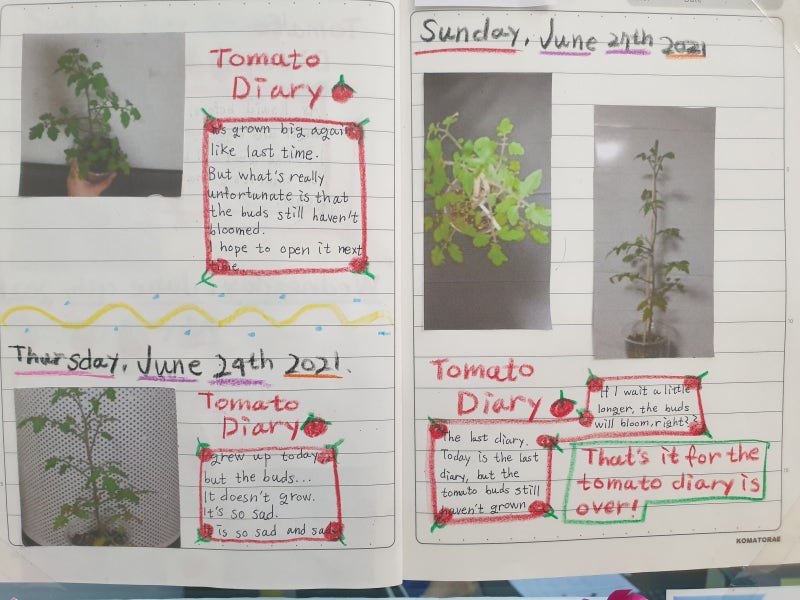 Tomato
Diary
It's grown big again
like last time.
But what's really
unfortunate is that
the buds still haven't
bloomed.
I hope to open it next
time.
Thursday, June 24th 2021.
Tomato
Diary
grew up today
but the buds...
It doesn't grow.
It's so sad.
It is so sad and sad
Sunday, June 27th 2021
Tomato
Diary
If I wait a little
longer, the buds
will bloom, right??
The last diary.
Today is the last
diary, but the
tomato buds still
haven't grown
That's it for the
tomato diary is
over!
KOMATORAE